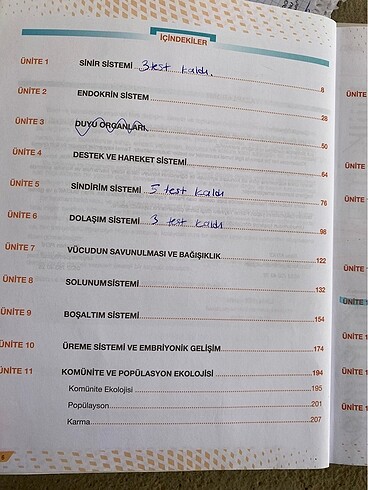 İÇİNDEKİLER
ÜNİTE 1 SİNİR SİSTEMİ 3 test kaldı. 8
ÜNİTE 2 ENDOKRİN SİSTEM 28
ÜNİTE 3 DUYU ORGANLARI 50
ÜNİTE 4 DESTEK VE HAREKET SİSTEMİ 64
ÜNİTE 5 SİNDİRİM SİSTEMİ 5 test kaldı 76
ÜNİTE 6 DOLAŞIM SİSTEMİ 3 test kaldı 98
ÜNİTE 7 VÜCUDUN SAVUNULMASI VE BAĞIŞIKLIK 122
ÜNİTE 8 SOLUNUM SİSTEMİ 132
ÜNİTE 9 BOŞALTIM SİSTEMİ 154
ÜNİTE 10 ÜREME SİSTEMİ VE EMBRİYONİK GELİŞİM 174
ÜNİTE 11 KOMÜNİTE VE POPÜLASYON EKOLOJİSİ 194
Komünite Ekolojisi 195
Popülasyon 201
Karma 207
ÜNİTE
ÜNİTE
ÜNİTE
ÜNİTE
ÜNİTE 1
ÜNİTE 1
ÜNİTE 1
ÜNİTE 1